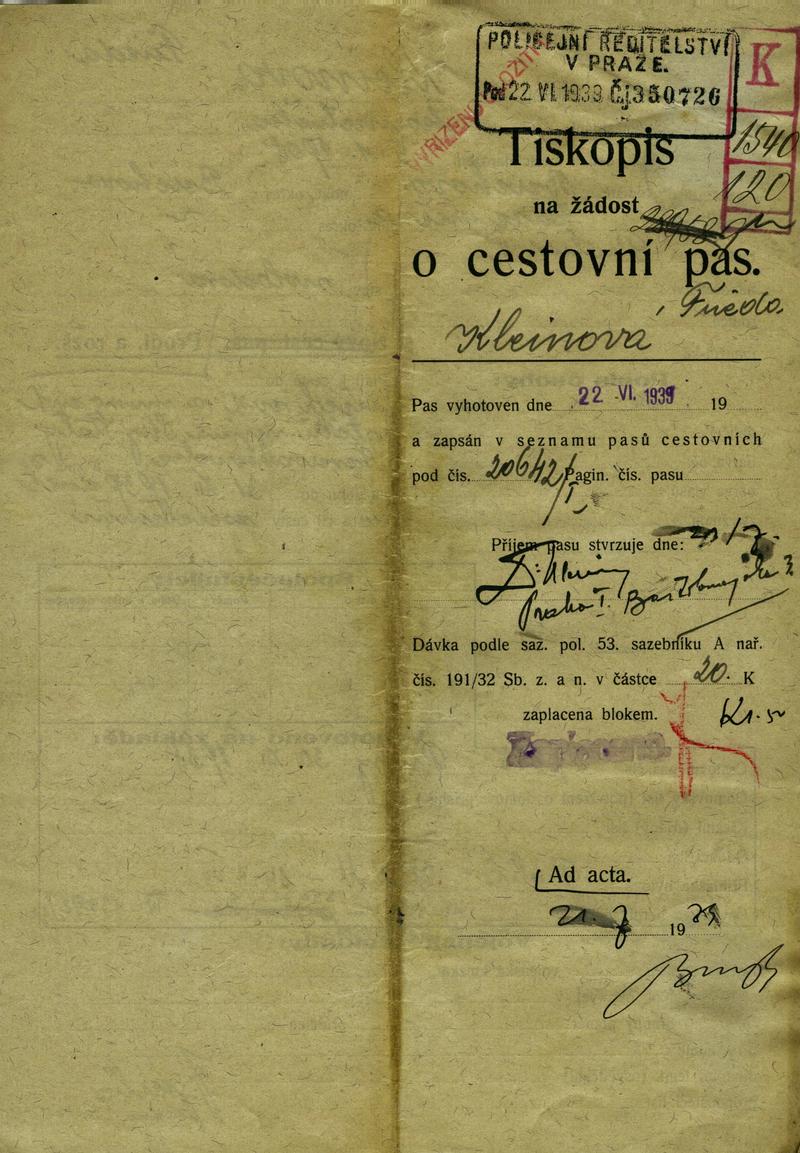 POLICEJNÍ ŘEDITELSTVÍ
V PRAZE.
Pod 22 VI 1939 Čj 350726
K
1540
120
VYŘÍZENO
Tiskopis
na žádost
o cestovní pas.
Kleinova, Frieda.
Pas vyhotoven dne 22 -VI. 1939 19
a zapsán v seznamu pasů cestovních
pod čís. 20642/ Pagin. čís. pasu
Příjem pasu stvrzuje dne:
Dávka podle saz. pol. 53. sazebníku A nař.
čís. 191/32 Sb. z. a n. v částce 20.- K
zaplacena blokem.
Ad acta.
21. 7 1939